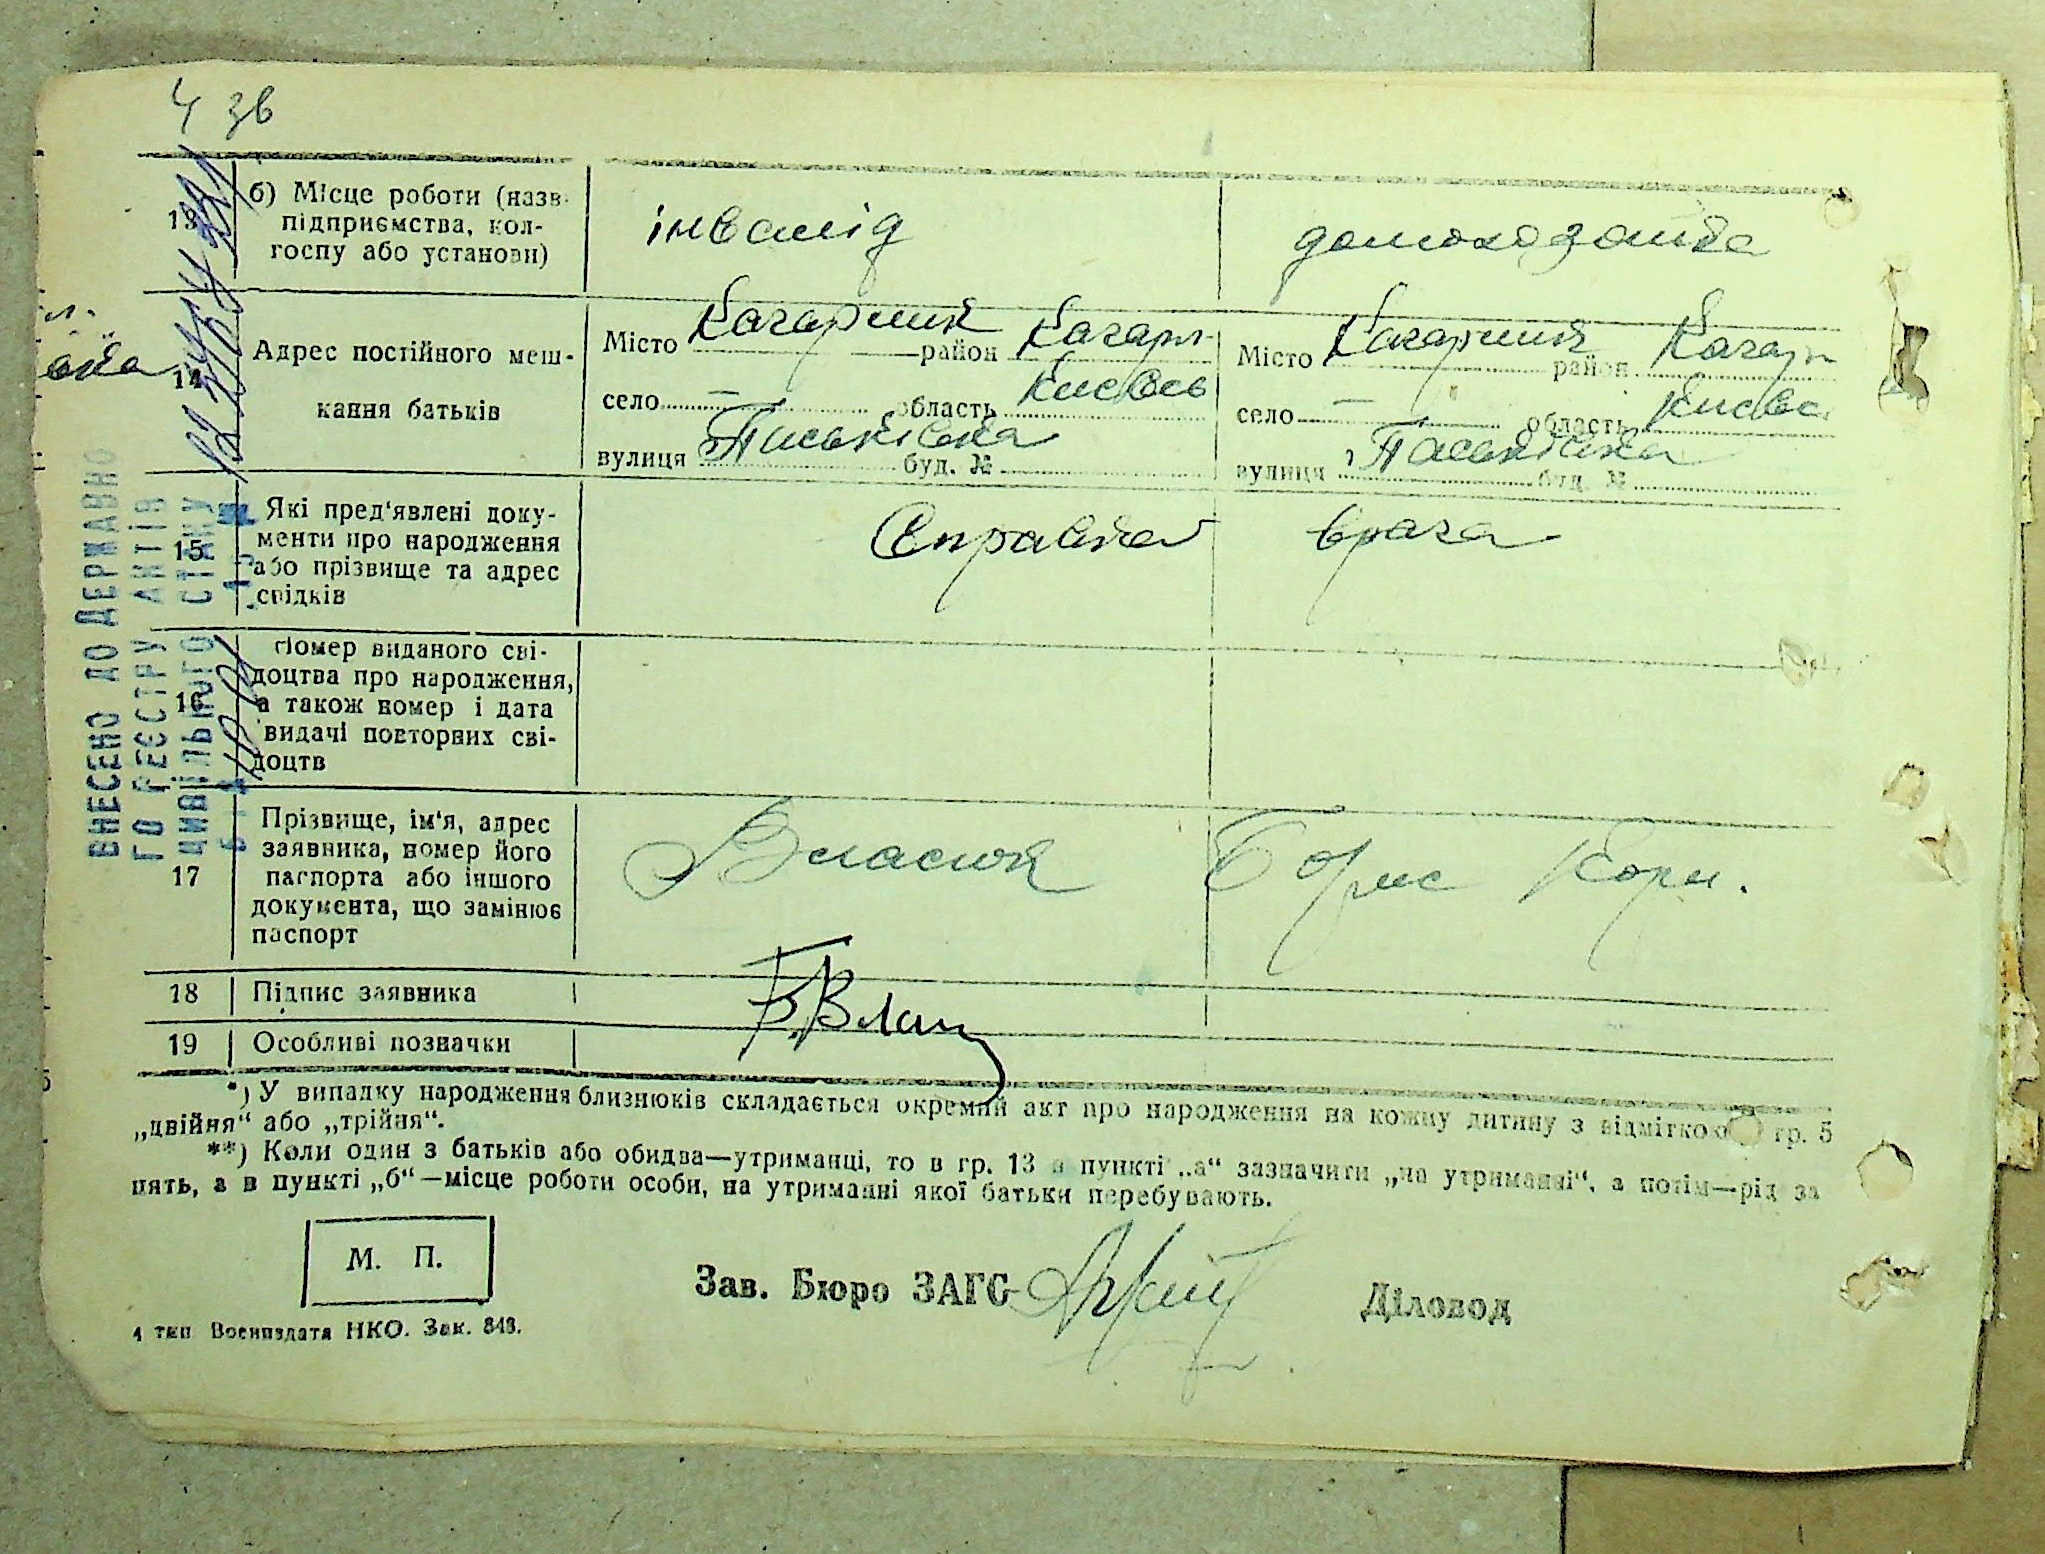 4 зв
13
б) Місце роботи (назв
підприємства, кол-
госпу або установи)
інвалід
домохозяйка
14
Адрес постійного меш-
кання батьків
Місто Кагарлик район Кагарл
село — область Києвсь
вулиця Паськівка буд. №
Місто Кагарлик район Кагарл
село — область Києвс
вулиця Паськівка буд. №
15
Які пред'явлені доку-
менти про народження
або прізвище та адрес
свідків
Справка врача
16
Номер виданого сві-
доцтва про народження,
а також номер і дата
видачі повторних сві-
доцтв
17
Прізвище, ім'я, адрес
заявника, номер його
паспорта або іншого
документа, що замінює
паспорт
Власюк Борис Корн.
18
Підпис заявника
19
Особливі позначки
*) У випадку народження близнюків складається окремий акт про народження на кожну дитину з відміткою гр. 5
„двійня" або „трійня".
**) Коли один з батьків або обидва—утриманці, то в гр. 13 в пункті „а" зазначити „на утриманні", а потім—рід за
нять, а в пункті „б"—місце роботи особи, на утриманні якої батьки перебувають.
М. П.
Зав. Бюро ЗАГС
Діловод
4 тип Воениздата НКО. Зак. 848.
ВНЕСЕНО ДО ДЕРЖАВНО
ГО РЕЄСТРУ АКТІВ
ЦИВІЛЬНОГО СТАНУ